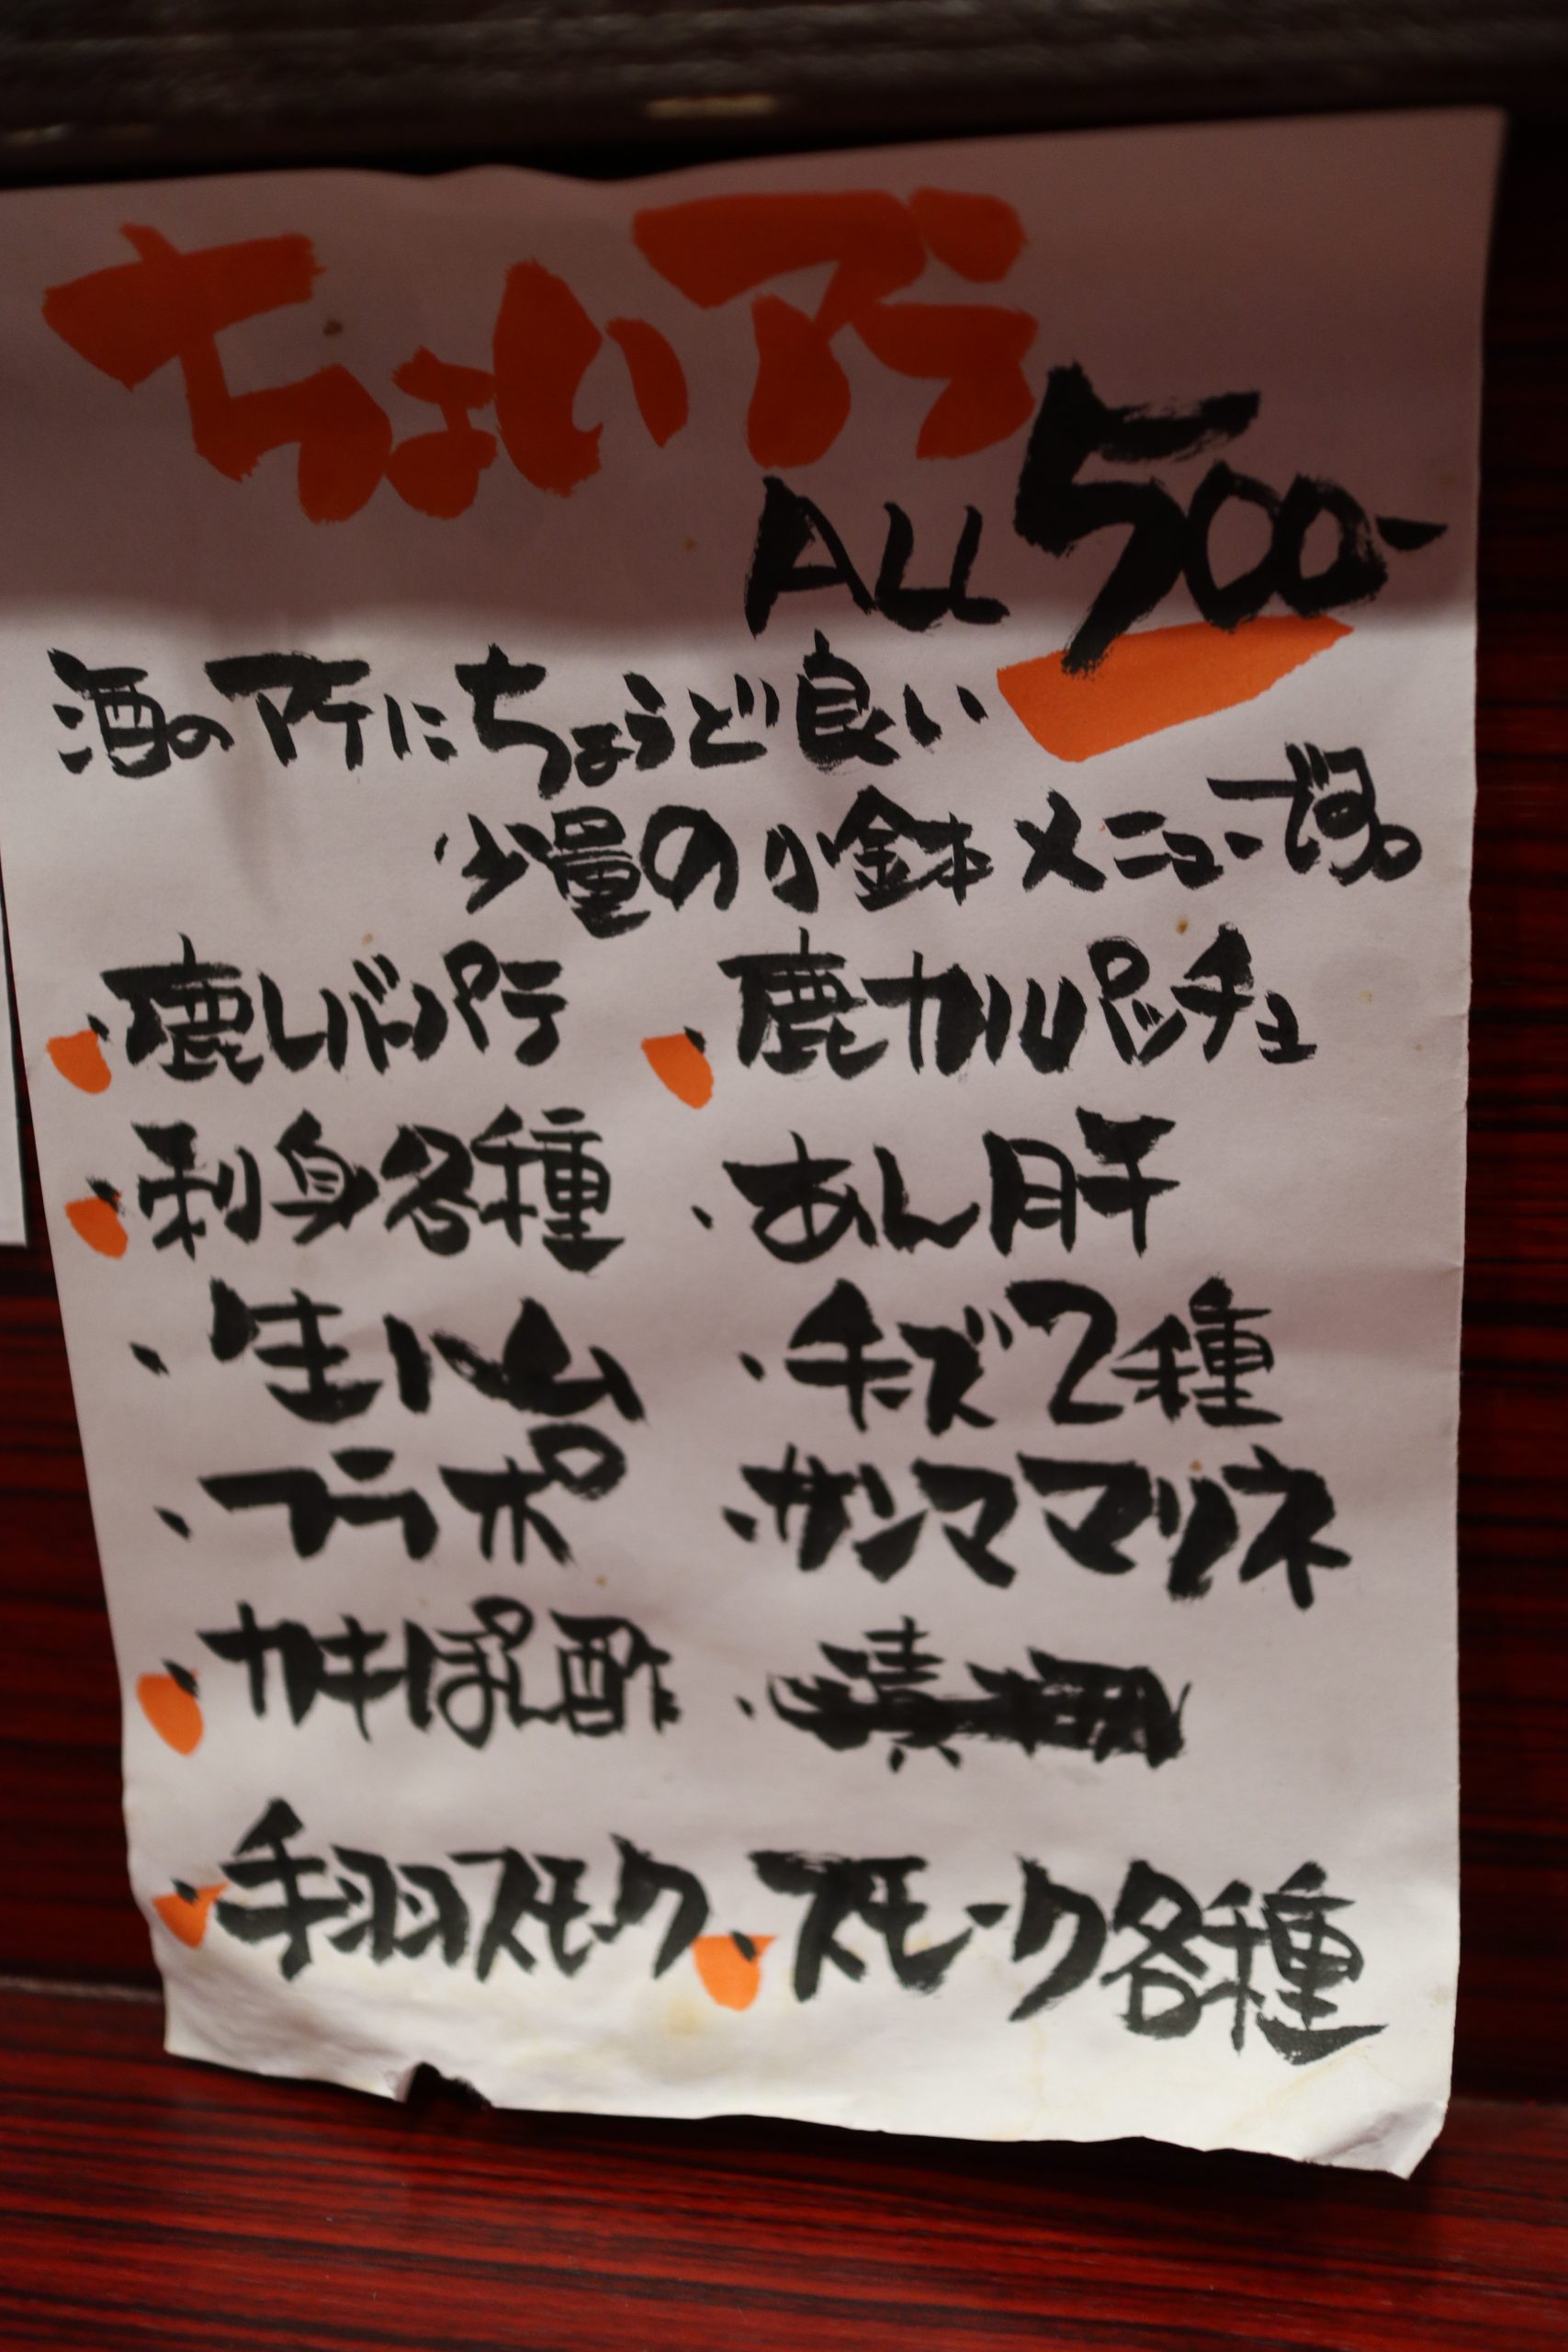 ちょいアテ
ALL 500-
酒のアテにちょうど良い
少量の小鉢メニューです。
・鹿レバーパテ ・鹿カルパッチョ
・刺身各種 ・あん肝
・生ハム ・チーズ2種
・フラポ ・サンママリネ
・カキぽん酢 ・
・手羽スモーク ・スモーク各種